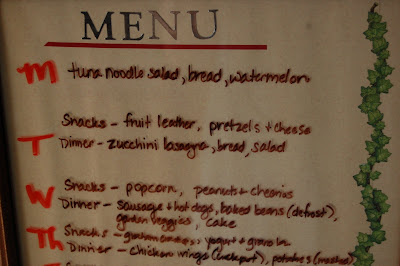 MENU
M tuna noodle salad, bread, watermelon
Snacks - fruit leather, pretzels + cheese
T Dinner - zucchini lasagna, bread, salad
Snacks - popcorn, peanuts + cheerios
W Dinner - sausage + hot dogs, baked beans (defrost),
garden veggies, cake
Th Snacks - graham yogurt + granola
Dinner - chicken wings (crockpot), potatoes (mashed)